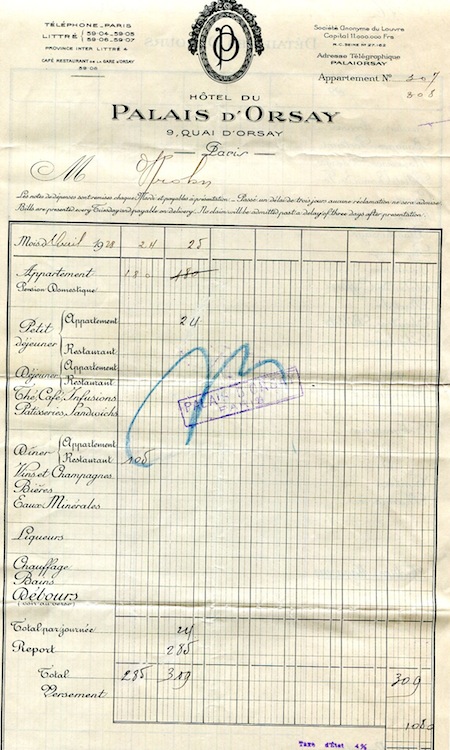 TÉLÉPHONE-PARIS
LITTRÉ { 59-04_59-05
59-06_59-07
PROVINCE INTER LITTRÉ 4
CAFÉ RESTAURANT DE LA GARE D'ORSAY
59-08
PO
Société Anonyme du Louvre
Capital 11.000.000 Frs
R.C. SEINE Nº 27-162
Adresse Télégraphique
PALAIORSAY
Appartement Nº 307
308
HÔTEL DU
PALAIS D'ORSAY
9, QUAI D'ORSAY
Paris
M
Les notes de dépenses sont remises chaque Mardi et payables à présentation. Passé un délai de trois jours aucune réclamation ne sera admise
Bills are presented every Tuesday and payable on delivery. No claim will be admitted past a delay of three days after presentation.
Mois d'Avril 1928 24 25
Appartement 180 180
Pension Domestique
Petit déjeuner { Appartement 24
Restaurant
Déjeuner { Appartement
Restaurant
Thé, Café, Infusions
Pâtisseries, Sandwichs
PALAIS D'ORSAY
PARIS
Dîner { Appartement
Restaurant 105
Vins et Champagnes
Bières
Eaux Minérales
Liqueurs
Chauffage
Bains
Débours
(voir au verso)
Total par journée 24
Report 285
Total 285 309 309
Versement
Taxe d'État 4%